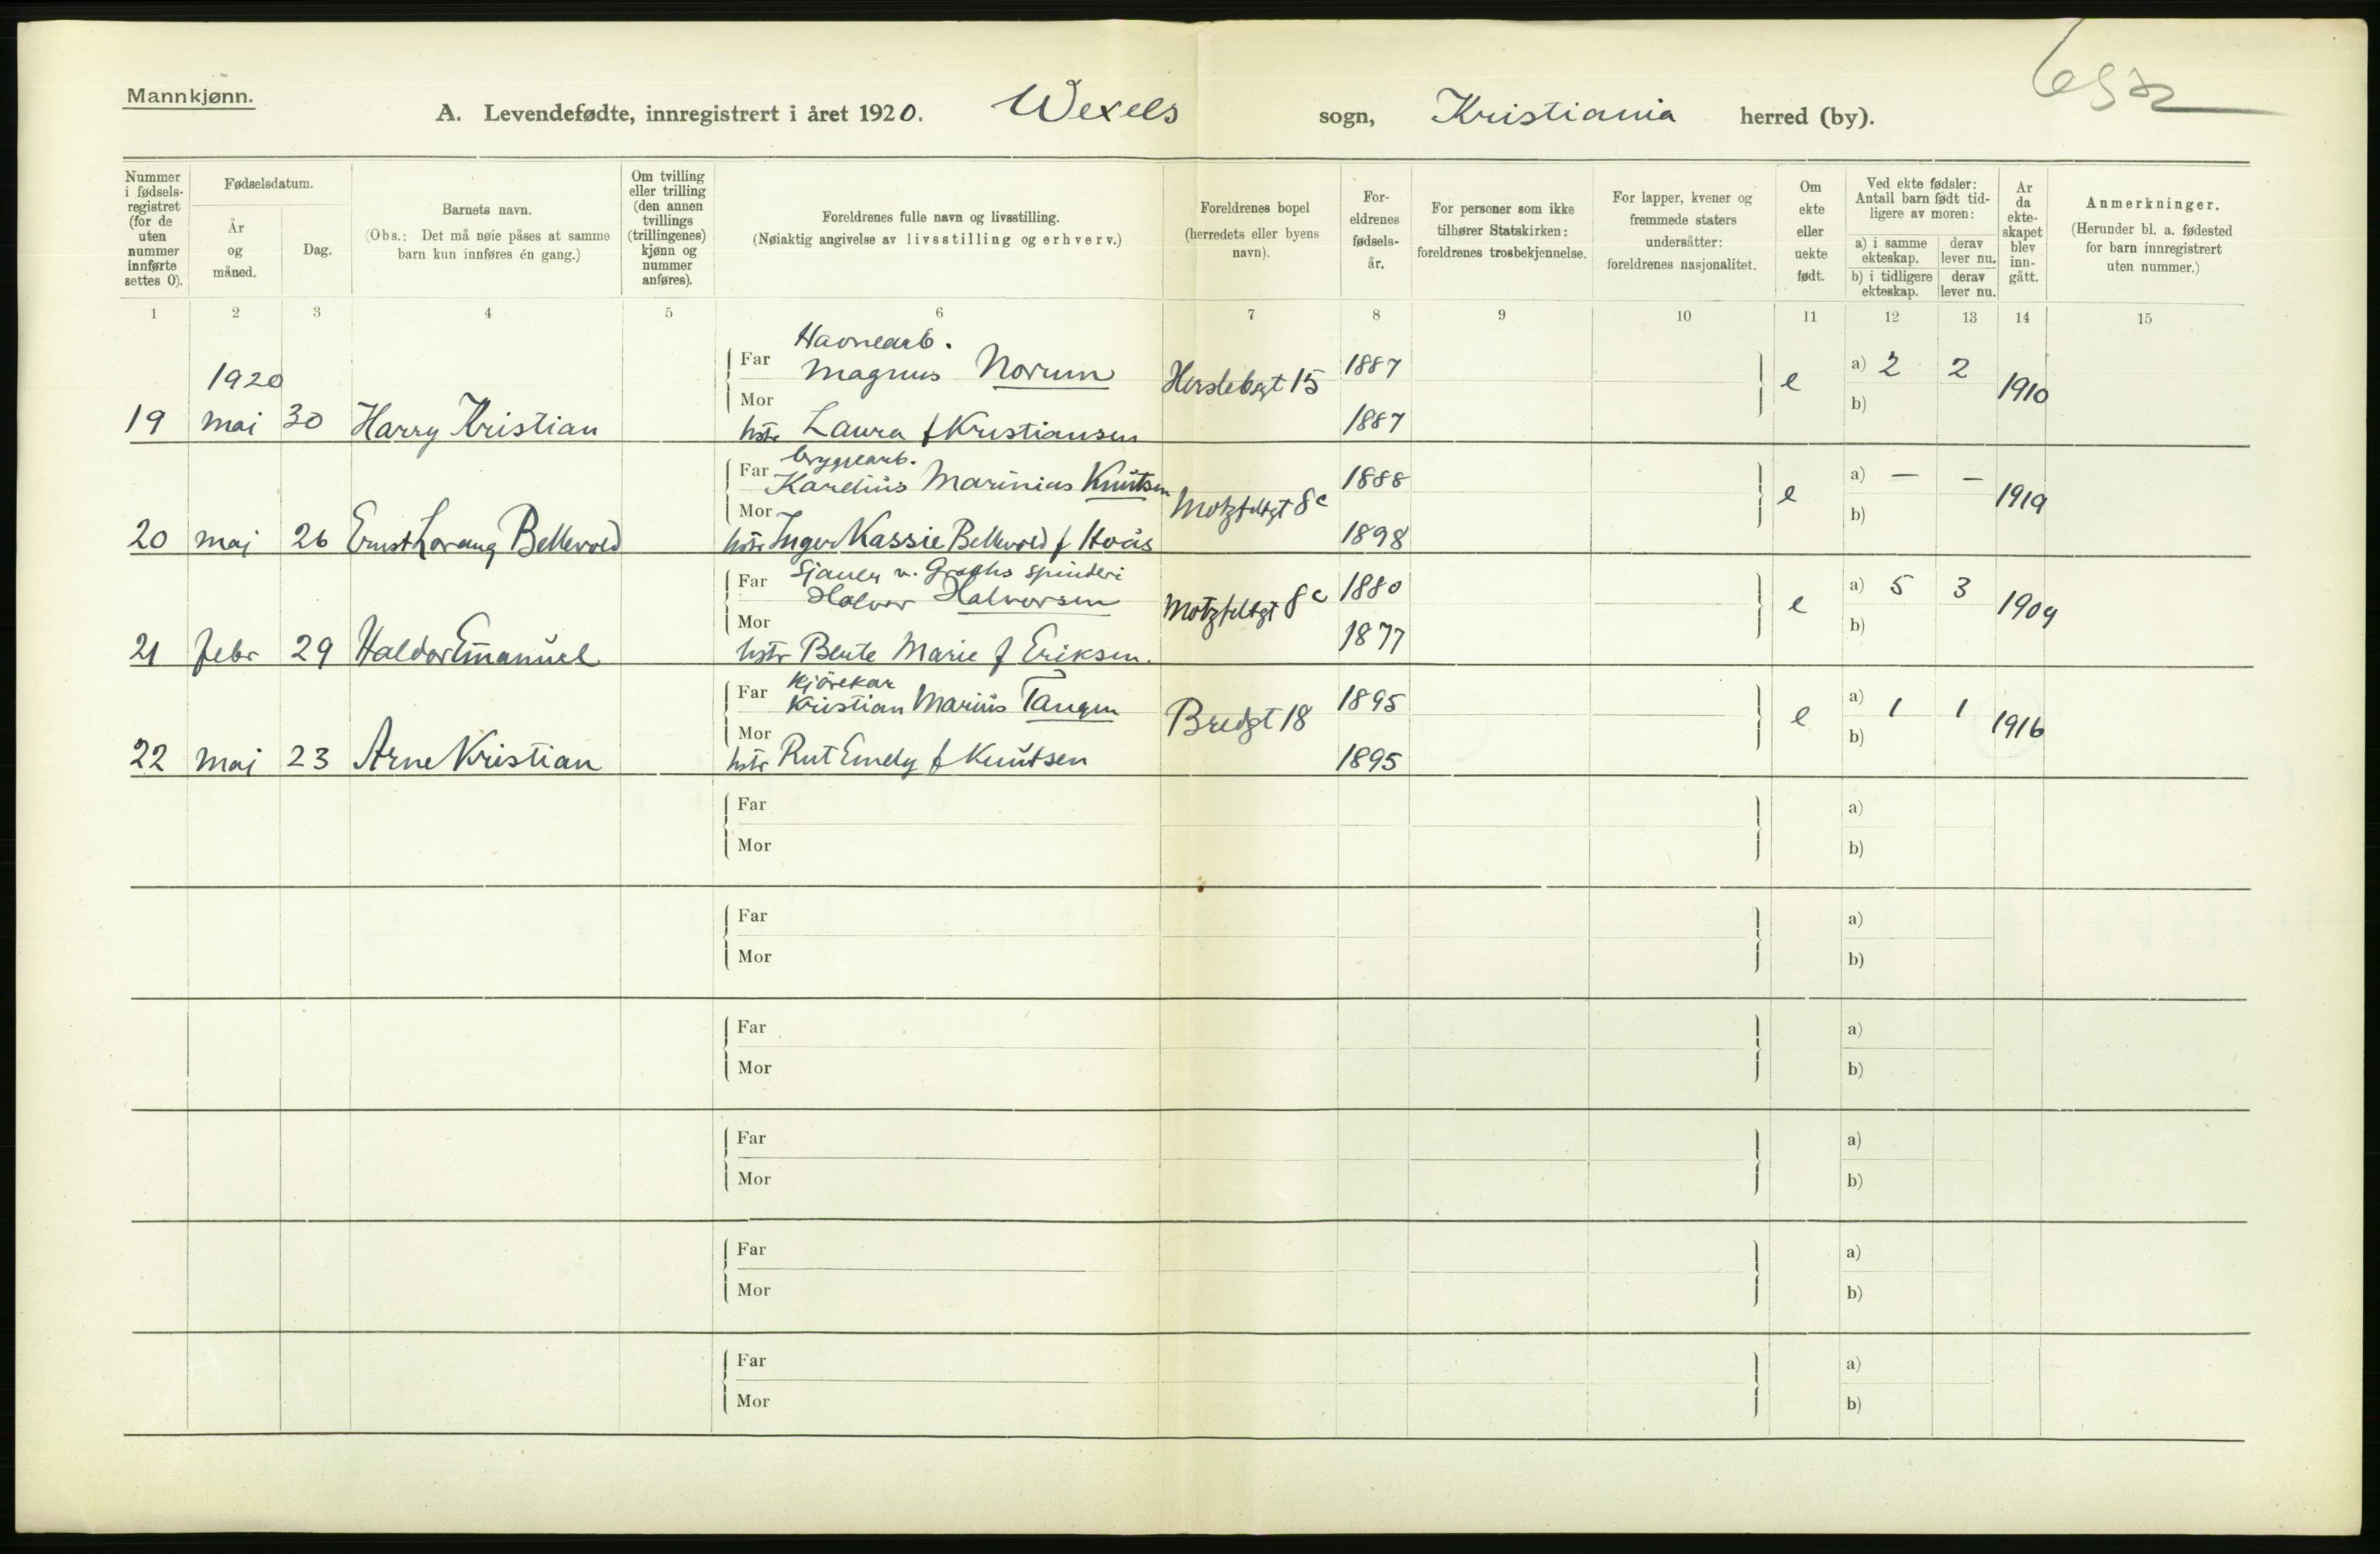 Mannkjønn.
A. Levendefødte, innregistrert i året 1920. Wexels sogn, Kristiania herred (by).
Nummer i fødselsregistret (for de uten nummer innførte settes 0).
Fødselsdatum.
År og måned.
Dag.
Barnets navn.
(Obs.: Det må nøie påses at samme barn kun innføres én gang.)
Om tvilling eller trilling (den annen tvillings (trillingenes) kjønn og nummer anføres).
Foreldrenes fulle navn og livsstilling.
(Nøiaktig angivelse av livsstilling og erhverv.)
Foreldrenes bopel (herredets eller byens navn).
Foreldrenes fødselsår.
For personer som ikke tilhører Statskirken: foreldrenes trosbekjennelse.
For lapper, kvener og fremmede staters undersåtter: foreldrenes nasjonalitet.
Om ekte eller uekte født.
Ved ekte fødsler: Antall barn født tidligere av moren:
a) i samme ekteskap. derav lever nu.
b) i tidligere ekteskap. derav lever nu.
År da ekteskapet blev inngått.
Anmerkninger.
(Herunder bl. a. fødested for barn innregistrert uten nummer.)
1 2 3 4 5 6 7 8 9 10 11 12 13 14 15
Havnearb.
1920 Far Magnus Norum Herslebsgt 15 1887 e a) 2 2 1910
19 mai 30 Harry Kristian Mor hstr Laura f Kristiansen 1887 b)
bryggearb.
Far Karelius Marinius Knutsen Motzfeltgt 8c 1888 e a) — — 1919
20 mai 26 Ernst Lorang Bellevold Mor hstr Inger Kassie Bellevold f Hoås 1898 b)
Sjauer v. Graahs spinderi
Far Halvor Halvorsen Motzfeltgt 8c 1880 e a) 5 3 1909
21 febr 29 Haldor Emanuel Mor hstr Berte Marie f Eriksen. 1877 b)
Kjörekar
Far Kristian Marius Tangen Bredgt 18 1895 e a) 1 1 1916
22 mai 23 Arne Kristian Mor hstr Rut Emely f Knutsen 1895 b)
Far a)
Mor b)
Far a)
Mor b)
Far a)
Mor b)
Far a)
Mor b)
Far a)
Mor b)
Far a)
Mor b)